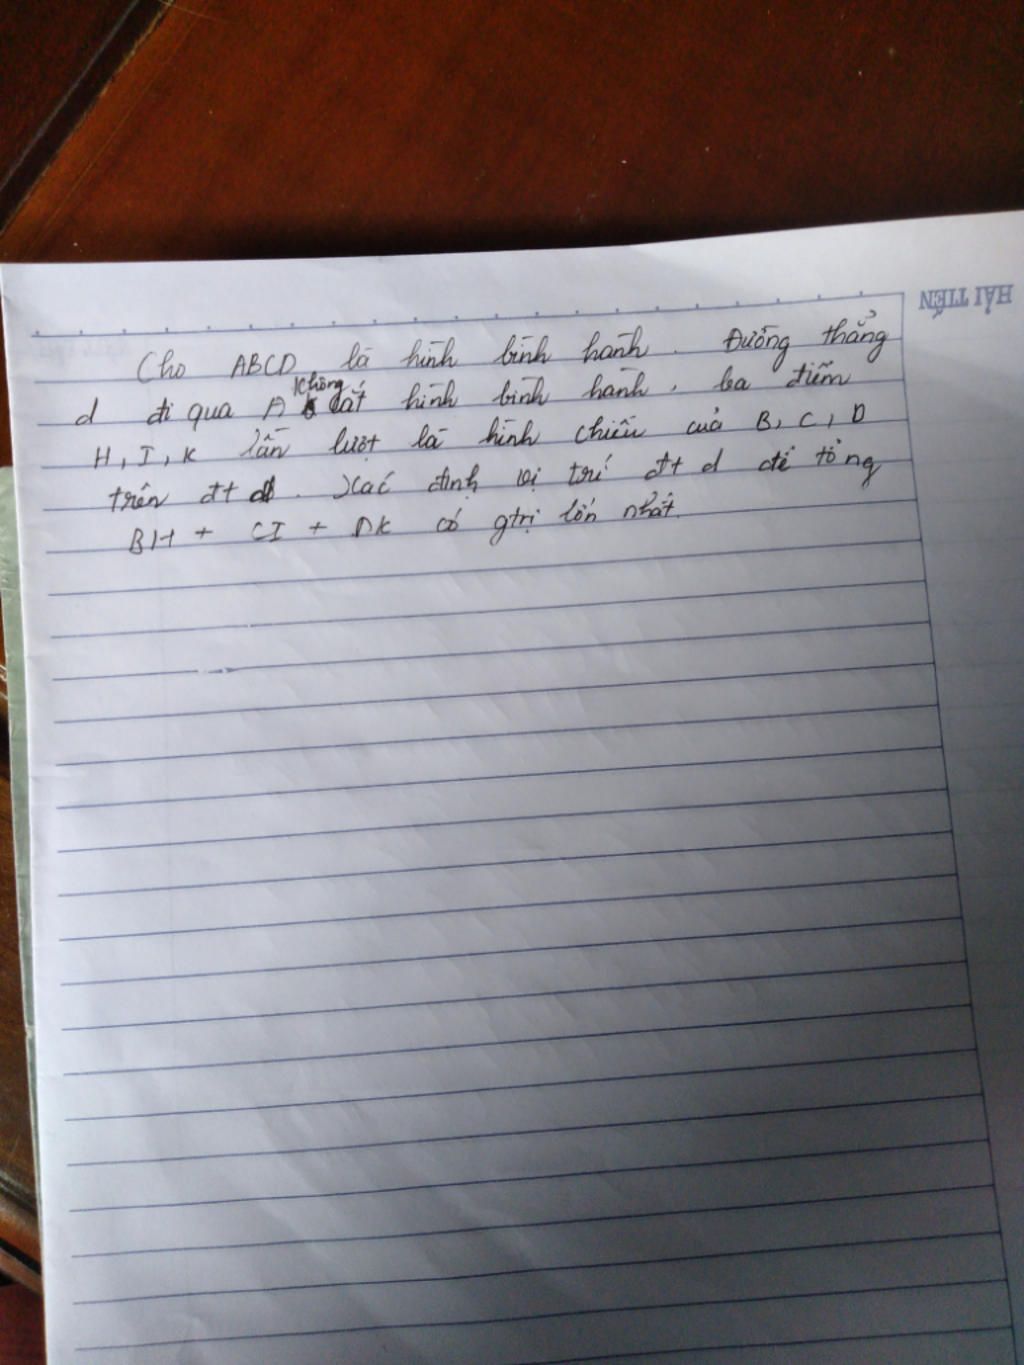 HẢI TIẾN
Cho ABCD là hình bình hành. Đường thẳng
d đi qua A không cắt hình bình hành, ba điểm
H, I, K lần lượt là hình chiếu của B, C, D
trên đt d. Xác định vị trí đt d để tổng
BH + CI + DK có gtrị lớn nhất.